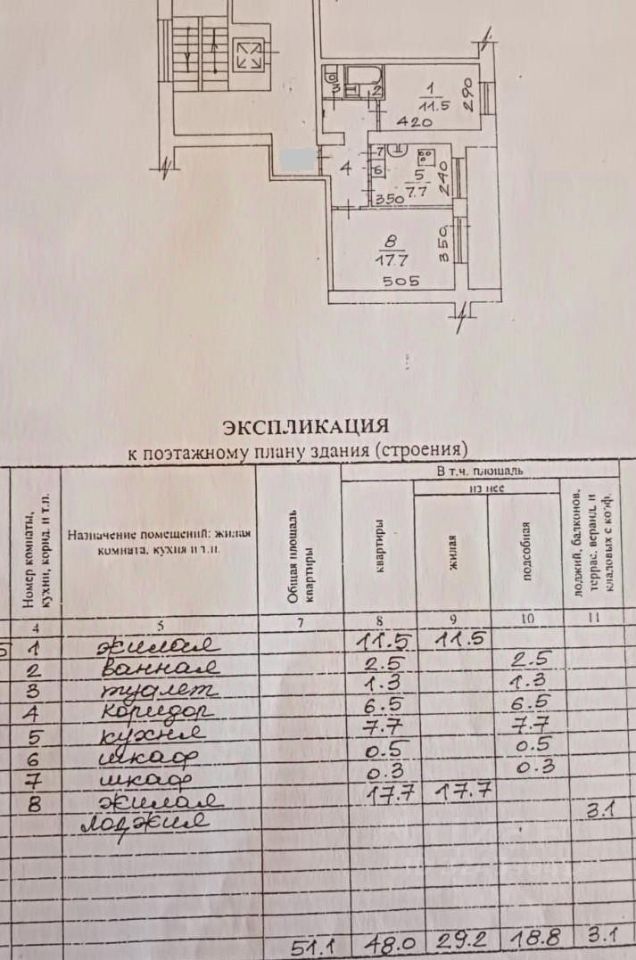 3 2
1
11.5
290
420
4
7
6
5
7.7
240
350
8
17.7
350
505
ЭКСПЛИКАЦИЯ
к поэтажному плану здания (строения)
Номер комнаты, кухни, корид. и т.п.
Назначение помещений: жилая комната, кухня и т.п.
Общая площаль квартиры
В т.ч. площаль
из нее
квартиры
жилая
подсобная
лоджий, балконов, террас, веранд, и кладовых с коэф.
4 5 7 8 9 10 11
1 жилая 11.5 11.5
2 ванная 2.5 2.5
3 туалет 1.3 1.3
4 коридор 6.5 6.5
5 кухня 7.7 7.7
6 шкаф 0.5 0.5
7 шкаф 0.3 0.3
8 жилая 17.7 17.7
лоджия 3.1
51.1 48.0 29.2 18.8 3.1